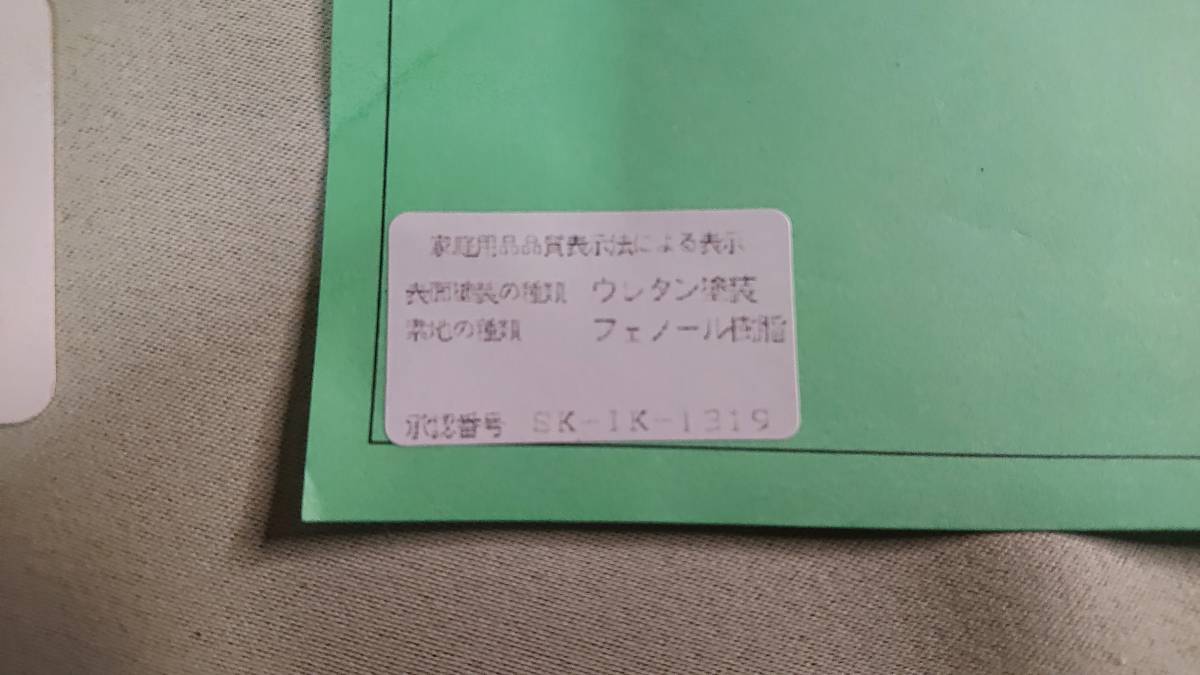 家庭用品品質表示法による表示
表面塗装の種類 ウレタン塗装
素地の種類 フェノール樹脂
承認番号 SK-IK-1319